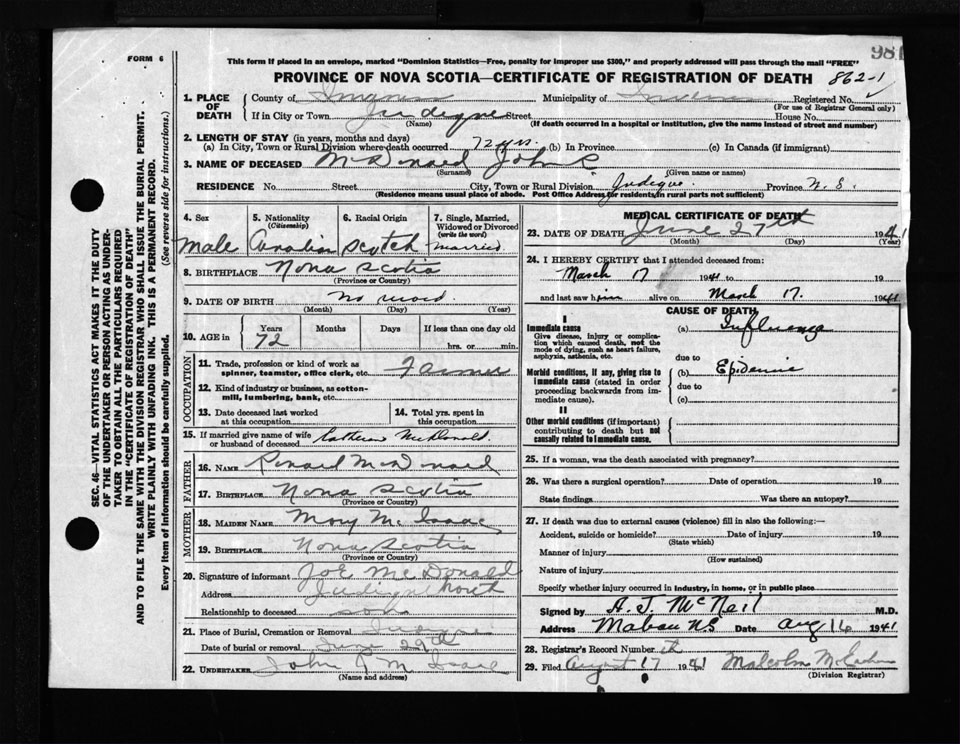 981
FORM 6
This form if placed in an envelope, marked "Dominion Statistics—Free, penalty for improper use $300," and properly addressed will pass through the mail "FREE"
PROVINCE OF NOVA SCOTIA—CERTIFICATE OF REGISTRATION OF DEATH 862-1
1. PLACE OF DEATH County of Municipality of Registered No.
(For use of Registrar General only)
If in City or Town Judique Street House No.
(Name) (If death occurred in a hospital or institution, give the name instead of street and number)
2. LENGTH OF STAY (in years, months and days)
(a) In City, Town or Rural Division where death occurred 72 yrs. (b) In Province (c) In Canada (if immigrant)
3. NAME OF DECEASED McDonald John
(Surname) (Given name or names)
RESIDENCE No. Street City, Town or Rural Division Judique Province N. S.
(Residence means usual place of abode. Post Office Address for residents in rural parts not sufficient)
4. Sex Male
5. Nationality (Citizenship) Canadian
6. Racial Origin Scotch
7. Single, Married, Widowed or Divorced (write the word) married
8. BIRTHPLACE Nova Scotia
(Province or Country)
9. DATE OF BIRTH no record.
(Month) (Day) (Year)
10. AGE in Years Months Days If less than one day old
72 hrs. or min.
OCCUPATION
11. Trade, profession or kind of work as spinner, teamster, office clerk, etc. Farmer
12. Kind of industry or business, as cotton-mill, lumbering, bank, etc.
13. Date deceased last worked at this occupation
14. Total yrs. spent in this occupation
15. If married give name of wife or husband of deceased McDonald.
FATHER
16. NAME Ronald McDonald
17. BIRTHPLACE Nova Scotia
(Province or Country)
MOTHER
18. MAIDEN NAME Mary Mc Isaac
19. BIRTHPLACE Nova Scotia
(Province or Country)
20. Signature of informant Joe McDonald
Address Judique North
Relationship to deceased son
21. Place of Burial, Cremation or Removal
Date of burial or removal June 29th
22. UNDERTAKER John Isaac
(Name and address)
MEDICAL CERTIFICATE OF DEATH
23. DATE OF DEATH June 27th 1941
(Month) (Day) (Year)
24. I HEREBY CERTIFY that I attended deceased from:
March 17 1941 to 19
and last saw him alive on March 17. 1941
CAUSE OF DEATH
I
Immediate cause (a) Influenza
Give disease, injury or complication which caused death, not the mode of dying, such as heart failure, asphyxia, asthenia, etc.
due to
Morbid conditions, if any, giving rise to immediate cause (stated in order proceeding backwards from immediate cause).
(b) Epidemic
due to
(c)
II
Other morbid conditions (if important) contributing to death but not causally related to immediate cause.
25. If a woman, was the death associated with pregnancy?
26. Was there a surgical operation? Date of operation 19
State findings Was there an autopsy?
27. If death was due to external causes (violence) fill in also the following:—
Accident, suicide or homicide? Date of injury 19
(State which)
Manner of injury
(How sustained)
Nature of injury
Specify whether injury occurred in industry, in home, or in public place
Signed by A. J. McNeil M.D.
Address Mabou N.S Date Aug 16 1941
28. Registrar's Record Number
29. Filed August 17 1941 Malcolm
(Division Registrar)
SEC. 46—VITAL STATISTICS ACT MAKES IT THE DUTY
OF THE UNDERTAKER OR PERSON ACTING AS UNDER-
TAKER TO OBTAIN ALL THE PARTICULARS REQUIRED
IN THE "CERTIFICATE OF REGISTRATION OF DEATH"
AND TO FILE THE SAME WITH THE DIVISION REGISTRAR WHO SHALL ISSUE THE BURIAL PERMIT.
WRITE PLAINLY WITH UNFADING INK. THIS IS A PERMANENT RECORD.
Every item of information should be carefully supplied. (See reverse side for instructions.)